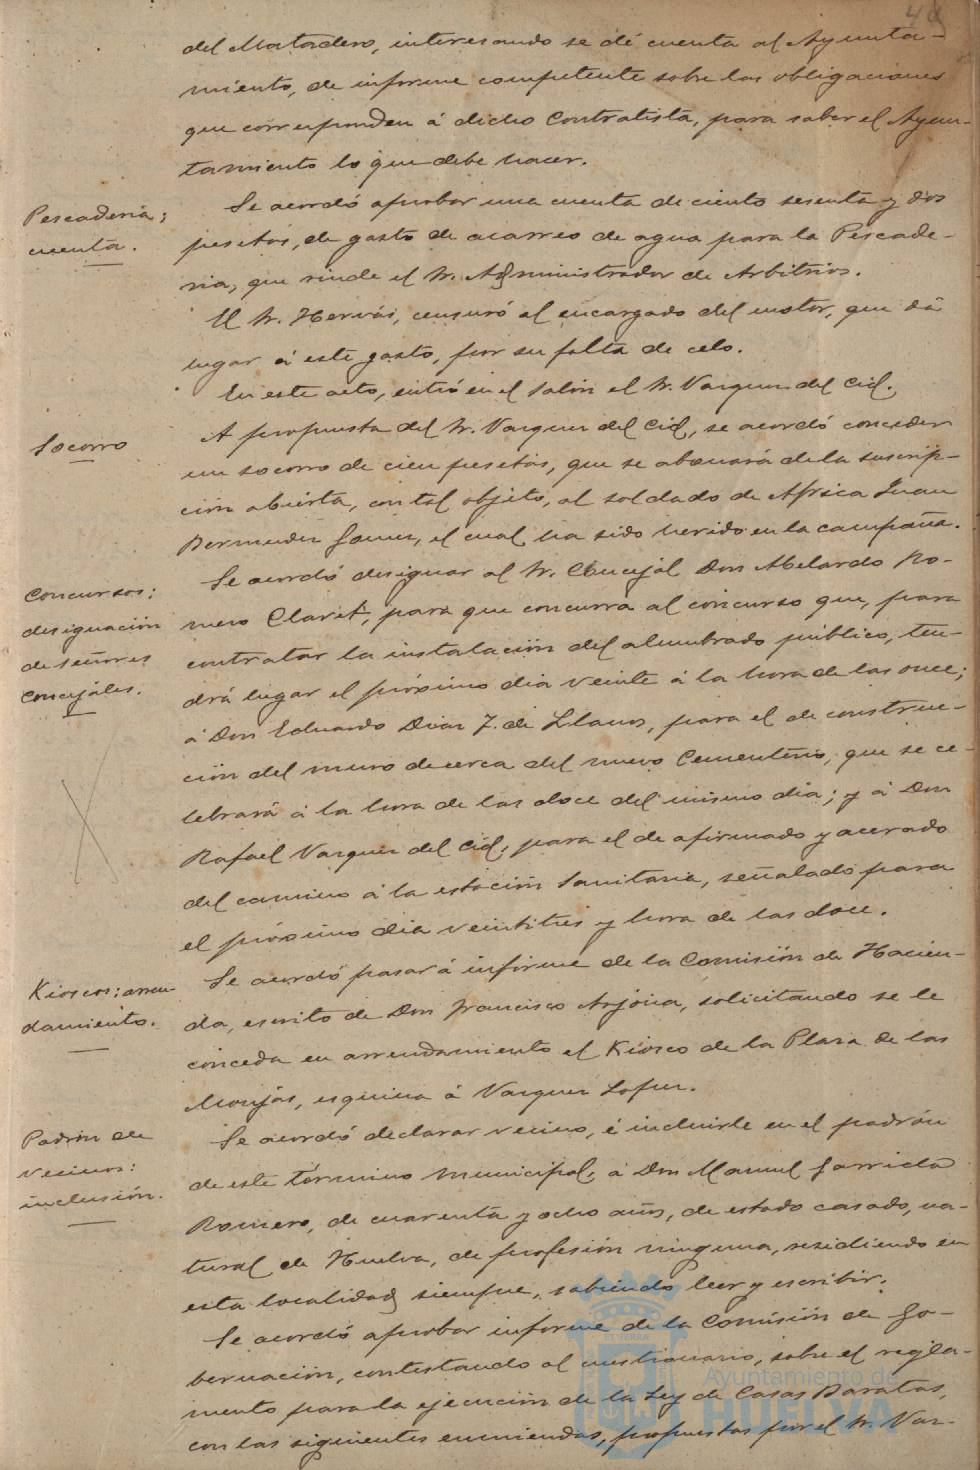 40
del Matadero, interesando se dé cuenta al Ayunta-
miento, de informe competente sobre las obligaciones
que corresponden á dicho Contratista, para saber el Ayun-
tamiento lo que debe hacer.
Pescaderia;
cuenta.
Se acordó aprobar una cuenta de ciento sesenta y dos
pesetas, de gasto de acarreo de agua para la Pescade-
ria, que rinde el Sr. Administrador de Arbitrios.
El Sr. Hervás, censuró al encargado del motor, que dá
lugar á este gasto, por su falta de celo.
En este acto, entró en el salón el Sr. Vazquez del Cid.
Socorro
A propuesta del Sr. Vazquez del Cid, se acordó conceder
un socorro de cien pesetas, que se abonará de la suscrip-
ción abierta, con tal objeto, al soldado de Africa Juan
Bermudez Gomez, el cual ha sido herido en la campaña.
Concursos:
designación
de señores
Concejales.
Se acordó designar al Sr. Concejal Don Abelardo Ro-
mero Claret, para que concurra al concurso que, para
contratar la instalación del alumbrado público, ten-
drá lugar el próximo dia veinte á la hora de las once;
á Don Eduardo Diaz F. de Llanos, para el de construc-
ción del muro de cerca del nuevo Cementerio, que se ce-
lebrará á la hora de las doce del mismo dia; y á Don
Rafael Vazquez del Cid, para el de afirmado y acerado
del camino á la estación Sanitaria, señalado para
el próximo dia veintitres y hora de las doce.
Kioscos; arren-
damiento.
Se acordó pasar á informe de la Comisión de Hacien-
da, escrito de Don Francisco Arjona, solicitando se le
conceda en arrendamiento el Kiosco de la Plaza de las
Monjas, esquina á Vazquez Lopez.
Padrón de
vecinos:
inclusión.
Se acordó declarar vecino, é incluirle en el padrón
de este término municipal, á Don Manuel Garrido
Romero, de cuarenta y ocho años, de estado casado, na-
tural de Huelva, de profesión ninguna, residiendo en
esta localidad siempre, sabiendo leer y escribir.
Se acordó aprobar informe de la Comisión de Go-
bernación, contestando al cuestionario, sobre el regla-
mento para la ejecución de la Ley de Casas Baratas,
con las siguientes enmiendas, propuestas por el Sr. Vaz-
Ayuntamiento de
HUELVA